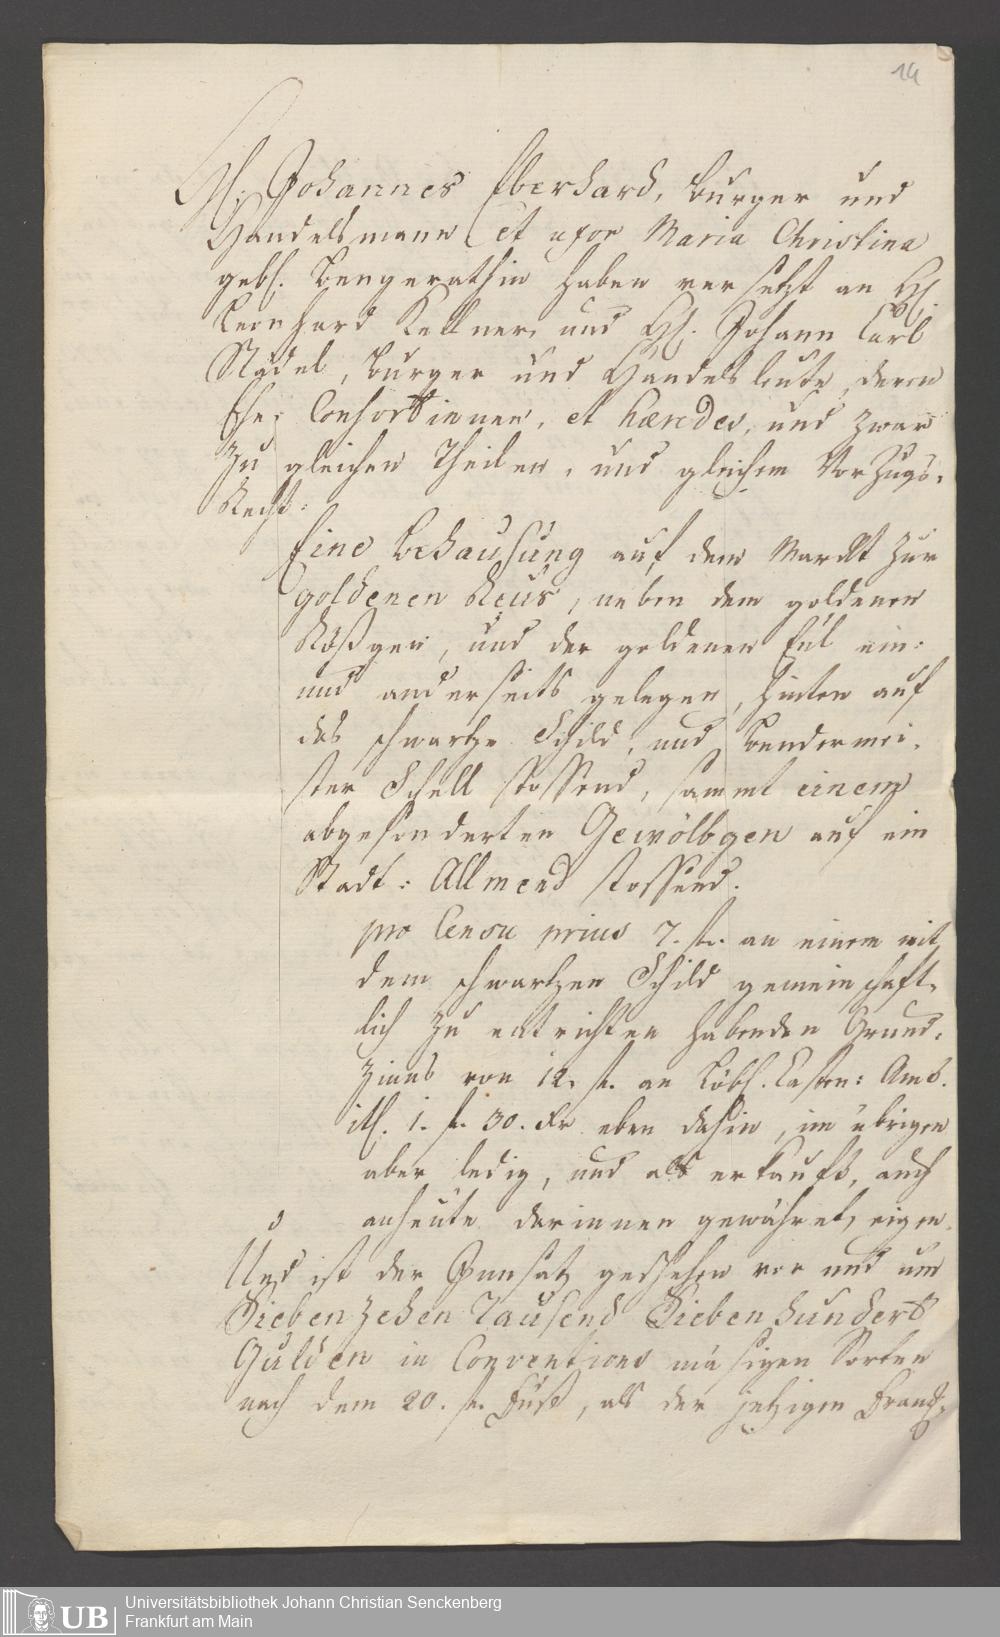 14
H. Johannes Eberhard, Burger und
Handelsmann et uxor Maria Christina
gebh. Bengerathin haben versetzt an H.
Leonhard Kellner, und H. Johann Carl
Städel, Burger und Handelsleute, deren
Ehe: Consortinnen, et hæredes, und zwar
zu gleichen Theilen, und gleichem Vorzugs-
Recht:
Eine Behausung auf dem Marckt zur
goldenen Reus, neben dem goldenen
Rößgen, und der goldenen Eul ein-
und anderseits gelegen, hinten auf
das schwartze Schild, und Bendermei-
ster Schell stossend, sammt einem
abgesonderten Gewölbgen auf ein
Stadt: Allmend stossend.
pro Censu prius 7. fl. an einem mit
dem schwartzen Schild gemeinschaft-
lich zu entrichten habenden Grund-
Zinns von 12. fl. an Löbl. Casten: Amt.
it. 1. fl. 30. Kr eben dahin, im übrigen
aber ledig, und als erkauft, auch
anheute darinnen gewähret, eigen.
Und ist der Einsatz geschehen vor und um
Siebenzehen Tausend Siebenhundert
Gulden in Conventions mäsigen Sorten
nach dem 20. fl. Fuß, als der jetzigen Franckf.
UB
Universitätsbibliothek Johann Christian Senckenberg
Frankfurt am Main